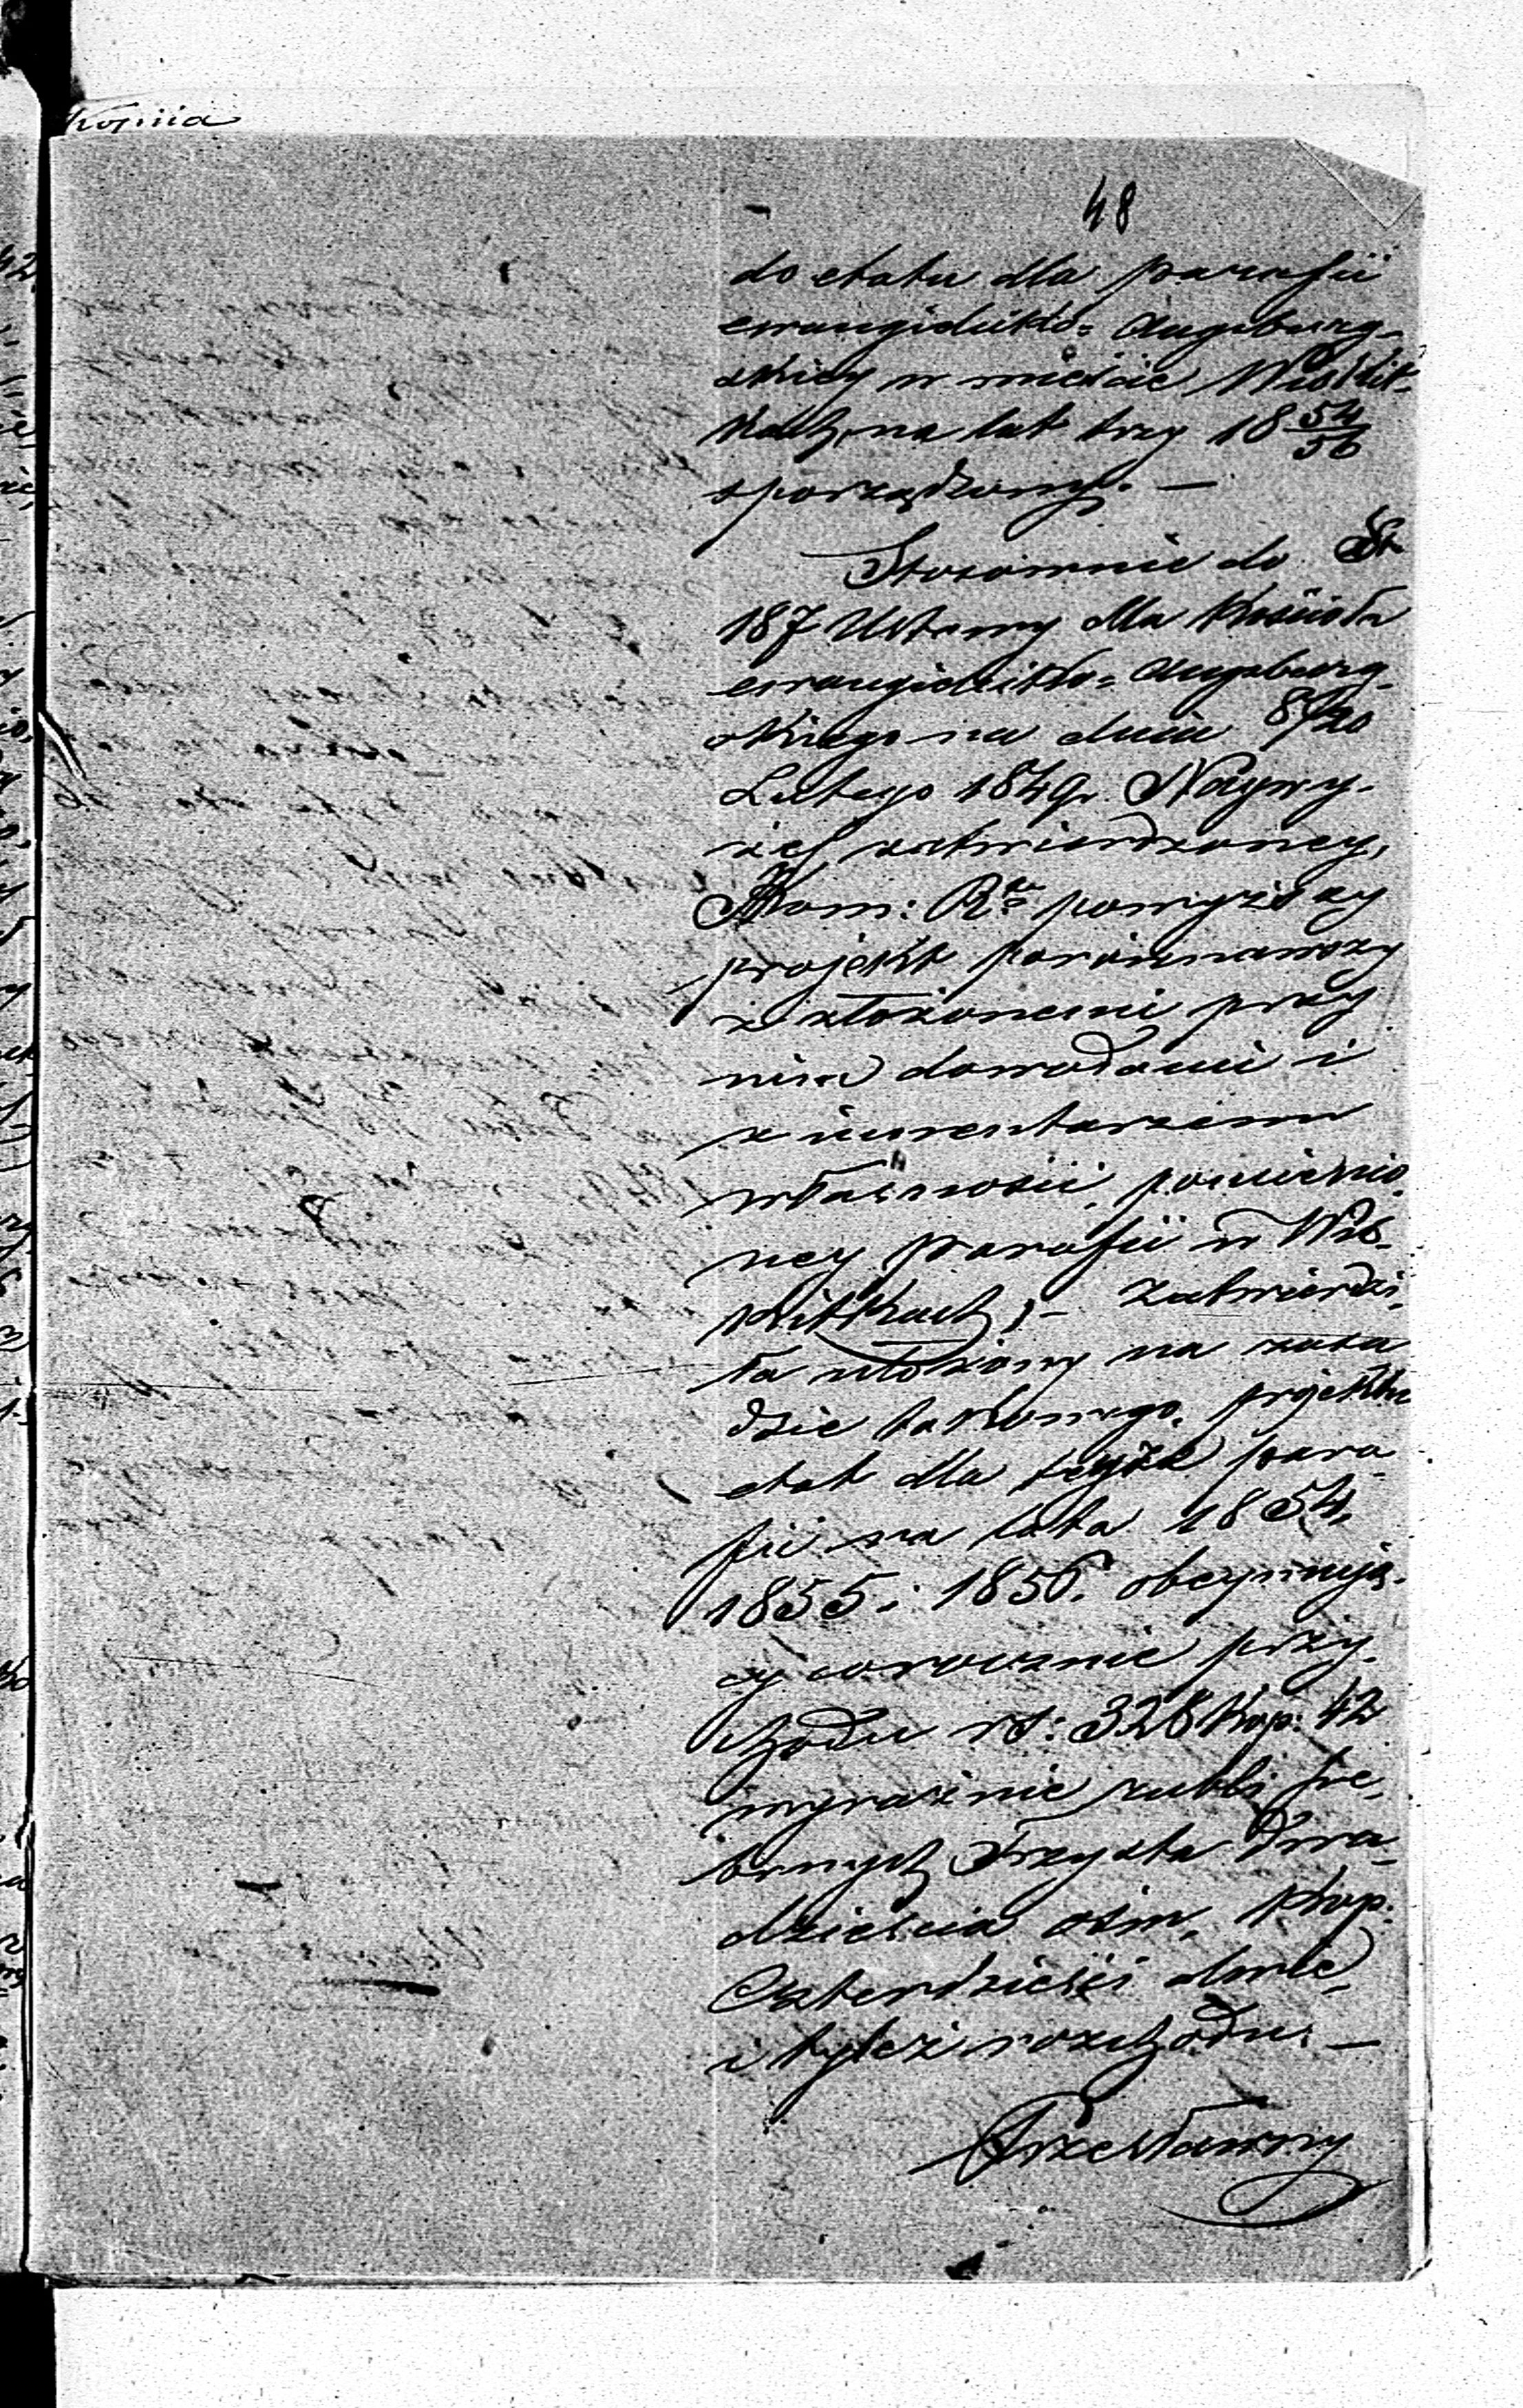 Kopiia
48
do etatu dla parafii
ewangielicko= Augsburg-
skiey w mieście Wiskit-
kach, na lat trzy 18 54/56
sporządzony. —
Stosownie do §tu
187 Ustawy dla Kościoła
ewangielicko= Augsburg-
skiego na dniu 8/20
Lutego 1849 r. Naywy-
żej zatwierdzoney,
Kom: Rwa powyższy
projekt porównawszy
z złożonemi przy
nim dowodami i
z inwentarzem
własności pomienio-
ney parafii w Wis-
kitkach, – zatwierdzi-
ła ułożony na zasa
dzie takowego projektu
etat dla teyże para
fii na lata 1854,
1855 i 1856. obeymują-
cy corocznie przy-
chodu rs: 328 Kop: 42
wyraźnie rubli sre-
brnych Trzysta dwa-
dzieścia ośm, Kop:
Czterdzieści dwie,
i tyleż rozchodu. —
Przecławny